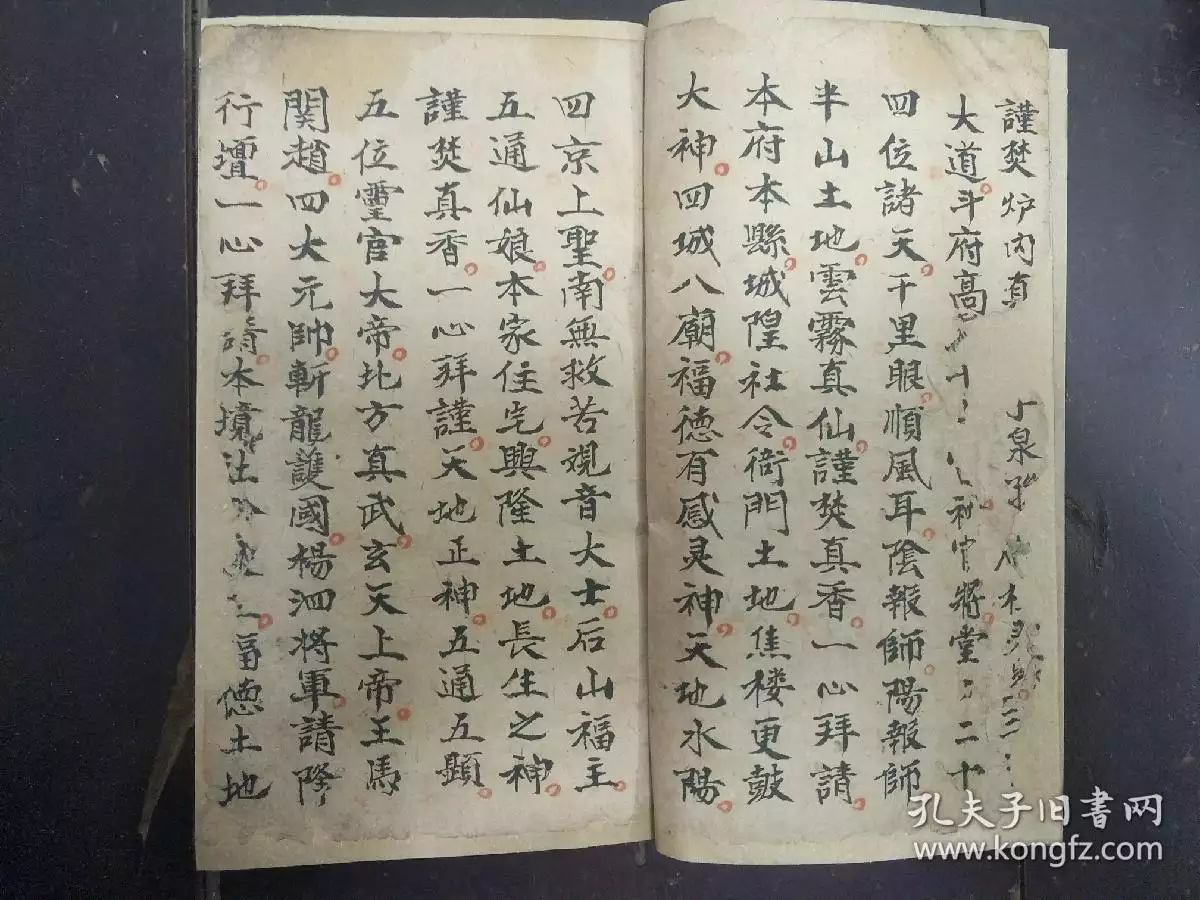 謹焚炉内真 泉
大道。斗府高 將堂 二十
四位諸天。千里眼順風耳。陰報師。陽報師
半山土地。雲霧真仙。謹焚真香。一心拜請。
本府本縣。城隍社令。衙門土地。焦楼更鼓
大神。四城八廟。福德有感灵神。天地水陽。
四京上聖。南無救苦观音大士。后山福主。
五通仙娘。本家住宅。興隆土地。長生之神。
謹焚真香。一心拜謹。天地正神。五通五顯。
五位霊官大帝。北方真武。玄天上帝。王馬
関趙。四大元帅。斬龍護國。楊泗将軍。請降
行壇。一心拜請。本境 福德土地
孔夫子旧书网
www.kongfz.com